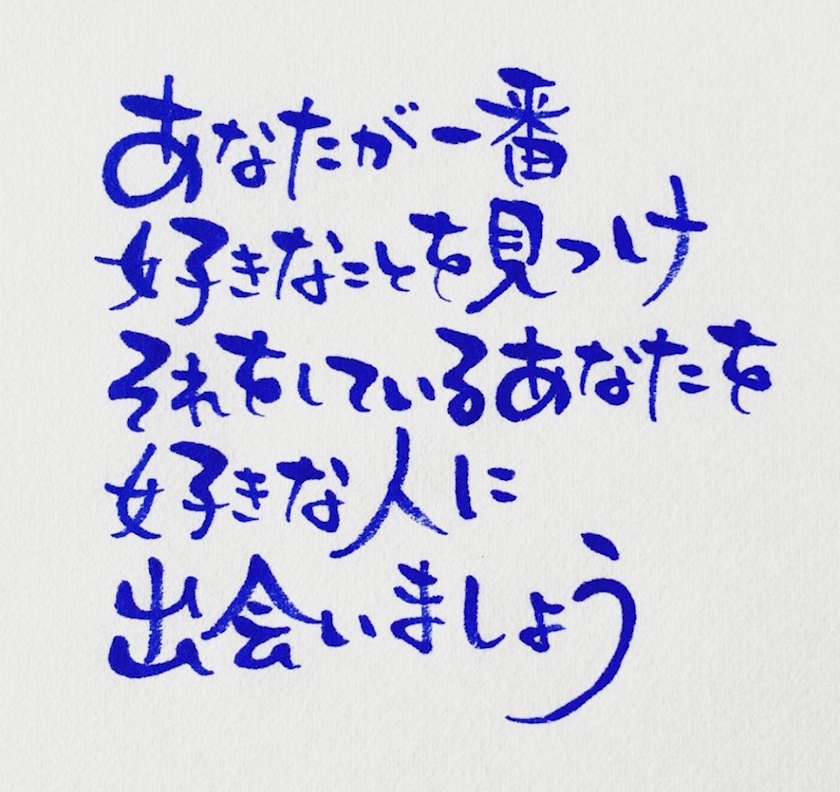 あなたが一番
好きなことを見つけ
それをしているあなたを
好きな人に
出会いましょう